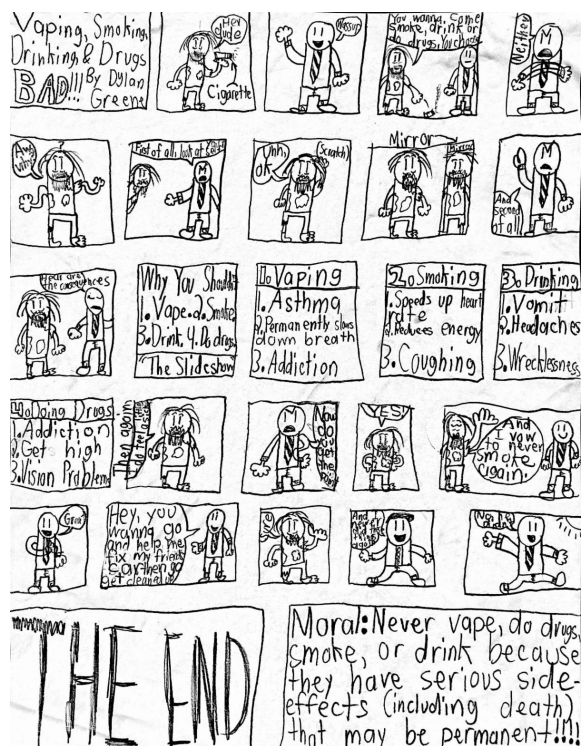 Vaping, Smoking,
Drinking & Drugs
BAD!!! By Dylan
Greene
Hey
dude
Cigarette
Wassup
You wanna come
smoke, drink or
do drugs, You choose
Neither
Aww,
why?
First of all, look at
Uhh,
ok
(Scratch)
Mirror
And
second
of all
Hear are
the consequences
Why You Shouldn't
1. Vape. 2. Smoke
3. Drink. 4. Do drugs
The Slideshow
1. Vaping
1. Asthma
2. Permanently slows
down breath
3. Addiction
2. Smoking
1. Speeds up heart
rate
2. Reduces energy
3. Coughing
3. Drinking
1. Vomit
2. Headaches
3. Wrecklessness
4. Doing Drugs
1. Addiction
2. Get high
3. Vision Problems
Then again
I do feel
Now
do
you
get
the
YES!
And
I vow
to never
smoke
again.
Great
Hey, you
wanna go
and help me
fix my friend's
car then go
get cleaned up
And
never
THE END
Moral: Never vape, do drugs,
smoke, or drink because
they have serious side-
effects (including death)
that may be permanent!!!!